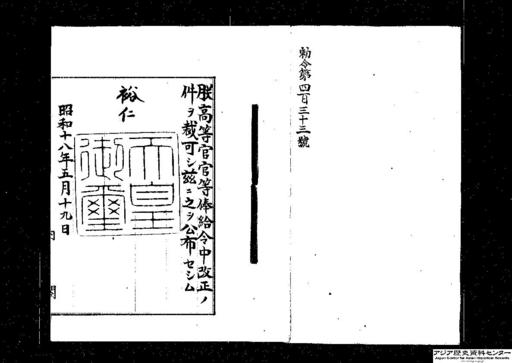 勅令第四百三十三號
朕高等官官等俸給令中改正ノ
件ヲ裁可シ茲ニ之ヲ公布セシム
裕仁
天皇
御璽
昭和十八年五月十九日
内閣
アジア歴史資料センター
Japan Center for Asian Historical Records